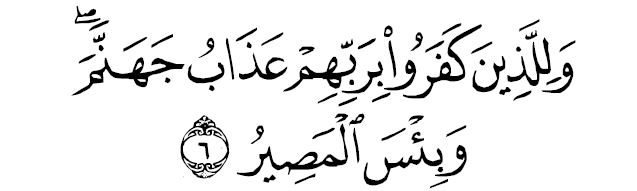 وَلِلَّذِينَ كَفَرُوا۟ بِرَبِّهِمْ عَذَابُ جَهَنَّمَ ۖ
وَبِئْسَ ٱلْمَصِيرُ ٦